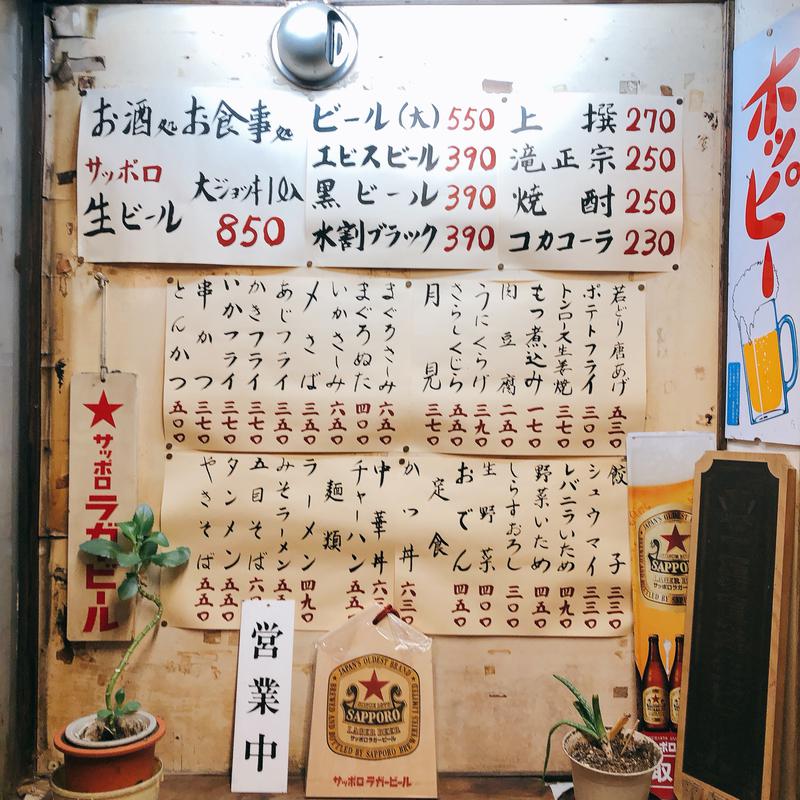 お酒処お食事処
サッポロ
生ビール
大ジョッキ1ℓ入
850
ビール(大) 550
エビスビール 390
黒ビール 390
水割ブラック 390
上撰 270
滝正宗 250
焼酎 250
コカコーラ 230
ホッピー
若どり唐あげ 五三〇
ポテトフライ 三〇〇
トンロース生姜焼 三七〇
もつ煮込み 一七〇
肉豆腐 二五〇
うにくらげ 三九〇
さらしくじら 五五〇
月見 三七〇
まぐろさしみ 六五〇
まぐろぬた 四〇〇
いかさしみ 六五〇
〆さば 三五〇
あじフライ 三五〇
かきフライ 三七〇
いかフライ 三七〇
串かつ 三七〇
とんかつ 五〇〇
餃子 三三〇
シュウマイ 三三〇
レバニラいため 四九〇
野菜いため 四五〇
しらすおろし 三〇〇
生野菜 四〇〇
おでん 四五〇
定食
かつ丼 六三〇
中華丼
チャーハン 五五
麺類
ラーメン 四九〇
みそラーメン 五五
五目そば 六
タンメン 五五〇
やきそば 五五〇
★サッポロラガービール
営業中
JAPAN'S OLDEST BRAND
SAPPORO
LAGER BEER
サッポロラガービール
BREWED AND BOTTLED BY SAPPORO BREWERIES LIMITED
サッポロラガービール
JAPAN'S OLDEST BRAND
SAPPO
LAGER BEER
取